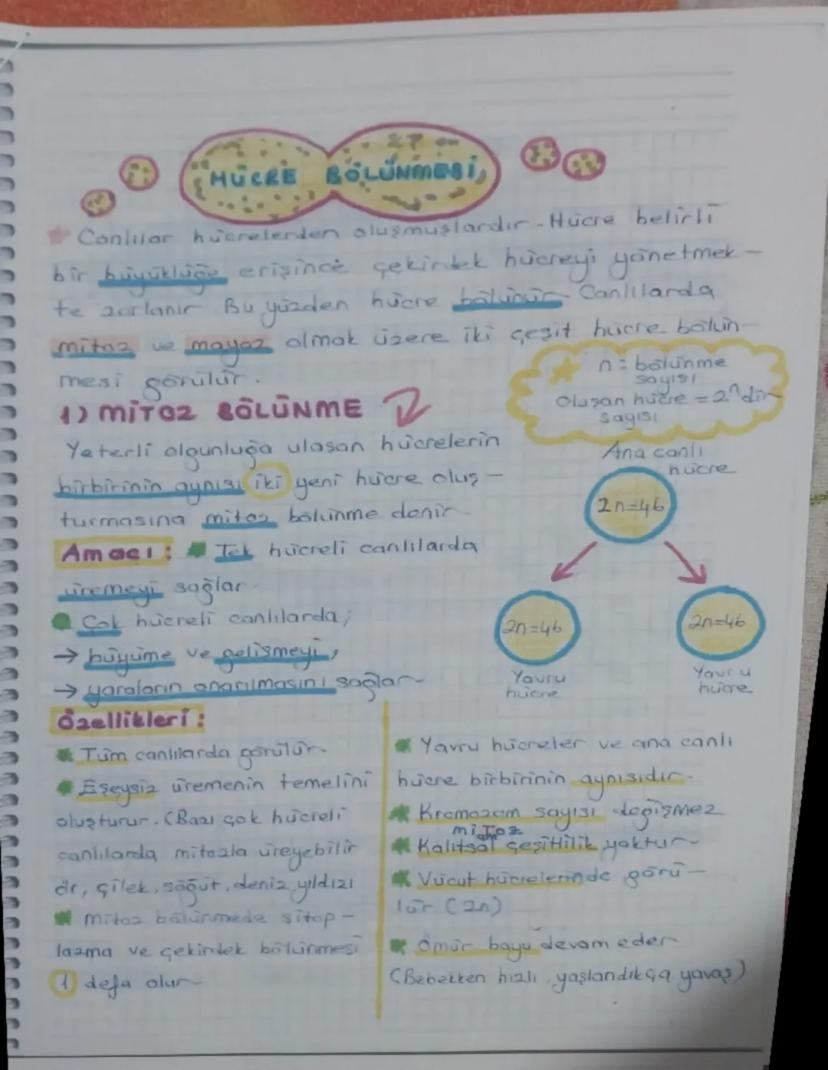 HÜCRE BÖLÜNMESİ
Canlılar hücrelerden oluşmuşlardır. Hücre belirli
bir büyüklüğe erişince çekirdek hücreyi yönetmek-
te zorlanır. Bu yüzden hücre bölünür. Canlılarda
mitoz ve mayoz olmak üzere iki çeşit hücre bölün-
mesi görülür.
n = bölünme
sayısı
Oluşan hücre = 2ⁿ dir
sayısı
1) MİTOZ BÖLÜNME
Yeterli olgunluğa ulaşan hücrelerin
birbirinin aynısı iki yeni hücre oluş-
turmasına mitoz bölünme denir.
Amacı: Tek hücreli canlılarda
üremeyi sağlar.
Çok hücreli canlılarda;
→ büyüme ve gelişmeyi,
→ yaraların onarılmasını sağlar.
Ana canlı
hücre
2n=46
2n=46 2n=46
Yavru
hücre
Yavru
hücre
Özellikleri:
Tüm canlılarda görülür.
Eşeysiz üremenin temelini
oluşturur. (Bazı çok hücreli
canlılarda mitozla üreyebilir
ör, çilek, söğüt, deniz yıldızı
Mitoz bölünmede sitop-
lazma ve çekirdek bölünmesi
1 defa olur.
Yavru hücreler ve ana canlı
hücre birbirinin aynısıdır.
Kromozom sayısı değişmez
mitoz
Kalıtsal çeşitlilik yoktur.
Vücut hücrelerinde görü-
lür (2n)
Ömür boyu devam eder
(Bebekken hızlı, yaşlandıkça yavaş)